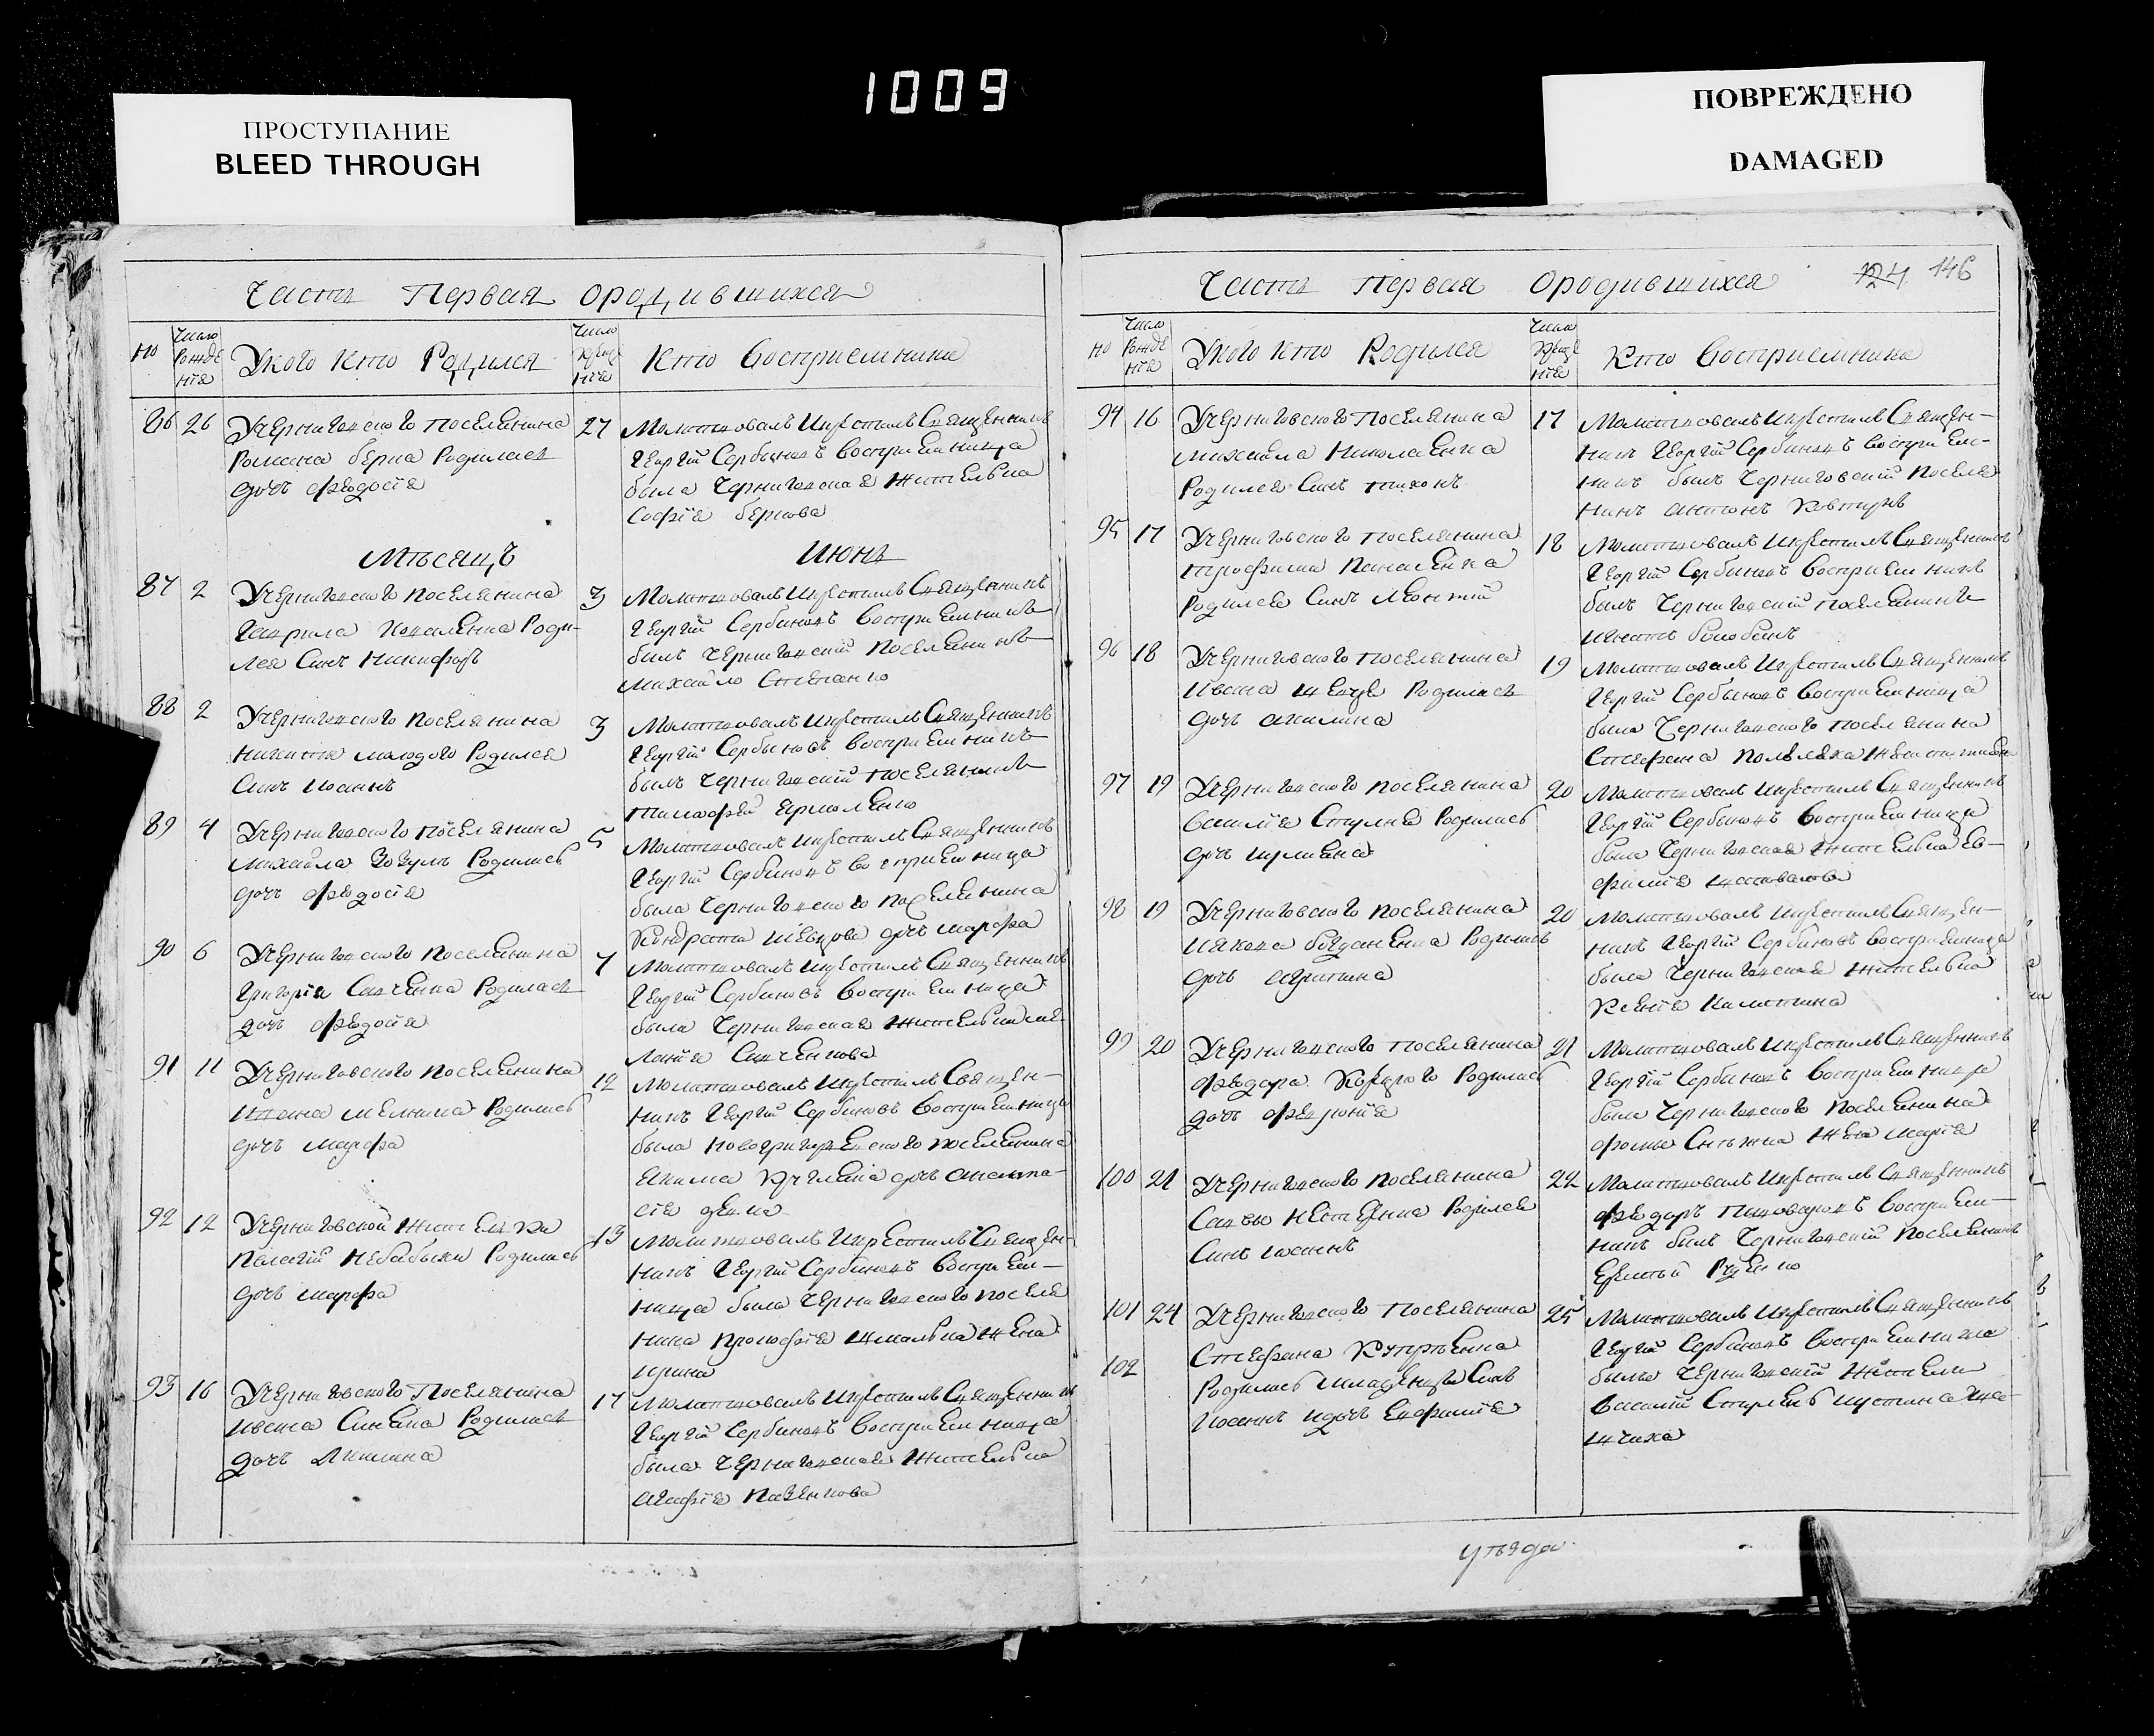 1009
ПРОСТУПАНИЕ
BLEED THROUGH
ПОВРЕЖДЕНО
DAMAGED
Часть Первая Ородившихся
но
Число Рожденія
Укого Кто Родился
Число Крещенія
Кто Восприемники
86 26 Учерниговского поселянина
Романа берна Родилась
дочь Феодосія
27 Молитвовалъ Икрестилъ Священникъ
Георгій Сербиновъ восприемница
была Черниговская жителька
Софія бернова
Мѣсяцъ Июнь
87 2 Учерниговского поселянина
Гаврила Коваленка Роди-
лся Синъ Никифоръ
3 Молитвовалъ Икрестилъ Священникъ
Георгій Сербиновъ Восприемникъ
билъ Черниговскій Поселянинъ
Михайло Степанко
88 2 Учерниговского поселянина
Никиты молодого Родился
Синъ Иоаннъ
3 Молитвовалъ Икрестилъ Священникъ
Георгій Сербиновъ Восприемникъ
билъ Черниговскій поселянинъ
Тимофей Ермоленко
89 4 Учерниговского поселянина
Михайла Зозулѣ Родилась
дочь Феодосія
5 Молитвовалъ Икрестилъ Священникъ
Георгій Сербиновъ восприемница
была Черниговского поселянина
Кондрата Шевцова дочь марфа
90 6 Учерниговского поселянина
Григорія Савченка Родилась
дочь Феодосія
7 Молитвовалъ Икрестилъ Священникъ
Георгій Сербиновъ Восприемница
была Черниговская жителька ме-
ланія Савченкова
91 11 Учерниговского поселянина
Ивана мелника Родилась
дочь марфа
12 Молитвовалъ Икрестилъ Священ-
никъ Георгій Сербиновъ Восприемница
была новогригорьевского поселянина
Екима дочь анаста-
сія девка
92 12 Учерниговской жителки
Пелагій Небабыки Родилась
дочь марфа
13 Молитвовалъ Икрестилъ Священ-
никъ Георгій Сербиновъ Восприем-
ница была Черниговского поселя
нина Прокофія Шмалька жена
ирина
93 16 Учерниговского Поселянина
Ивана Синенка Родилась
дочь Акилина
17 Молитвовалъ Икрестилъ Священникъ
Георгій Сербиновъ Восприемница
была Черниговская жителька
агафія
Часть Первая Ородившихся
124 146
но
Число Рожденія
Укого кто Родился
Число Крещенія
Кто Восприемники
94 16 Учерниговского Поселянина
Михайла Николаенка
Родился Синъ тихонъ
17 Молитвовалъ Икрестилъ Священ-
никъ Георгій Сербиновъ восприем-
никъ былъ Черниговскій Поселя
нинъ антонъ Ковтунъ
95 17 Учерниговского поселянина
трофима Панасенка
Родился Синъ Леонтій
18 Молитвовалъ Икрестилъ Священникъ
Георгій Сербиновъ Восприемникъ
былъ Черниговскій поселянинъ
игнатъ
96 18 Учерниговского Поселянина
Ивана Шевце Родилась
дочь акилина
19 Молитвовалъ Икрестилъ Священникъ
Георгій Сербиновъ Восприемница
была Черниговского поселянина
Стефана жена
97 19 Учерниговского поселянина
василія Стулня Родилась
дочь иулиана
20 Молитвовалъ Икрестилъ Священникъ
Георгій Сербиновъ Восприемница
была Черниговская жителька ев-
фимія Шаповалова
98 19 Учерниговского поселянина
Иякова богданенка Родилась
дочь агрипина
20 Молитвовалъ Икрестилъ Священ-
никъ Георгій Сербиновъ восприемница
была Черниговская жителька
Ксенія Калитина
99 20 Учерниговского поселянина
Феодора Коцурого Родилась
дочь Феврония
21 Молитвовалъ Икрестилъ Священникъ
Георгій Сербиновъ Восприемница
была Черниговского поселянина
фомы Снѣжка жена марія
100 21 Учерниговского поселянина
Савы Нестренка Родился
Синъ иоаннъ
22 Молитвовалъ Икрестилъ Священникъ
Феодоръ Пивоваровъ Восприем-
никъ былъ Черниговскій Поселянинъ
101 24 Учерниговского Поселянина
102 Стефана Купрѣенка
Родились младенцы Синъ
Иоаннъ идочь Евфимія
25 Молитвовалъ Икрестилъ Священникъ
Георгій Сербиновъ Восприемники
были Черниговскій жители
василій Стуленъ иустина Кра-
вчиха
уѣзда